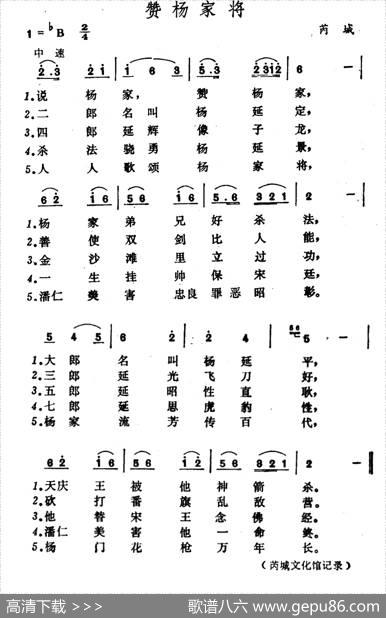 赞杨家将
1=♭B 2/4
芮城
中速
2·3 2 1 | 1 6 3 | 5·3 2312 | 6 — |
1.说杨家，赞杨家，
2.二郎名叫杨延定，
3.四郎延辉像子龙，
4.杀法骁勇杨延景，
5.人人歌颂杨家将，
6 2 1 6 | 1 5 6 | 5 6 3 2 1 | 2 — |
1.杨家弟兄好杀法，
2.善使双剑比人能，
3.金沙滩里立过功，
4.一生挂帅保宋廷，
5.潘仁美害忠良罪恶昭彰。
5 4 5 | 6 2 | 2 2 | 5 — |
1.大郎名叫杨延平，
2.三郎延光飞刀好，
3.五郎延昭性直耿，
4.七郎延思虎豹性，
5.杨家流芳传百代，
6 2 1 6 | 5 6 1 2 5 6 | 3 2 1 | 2 — ‖
1.天庆王被他神箭杀。
2.砍打番旗乱敌营。
3.他替宋王念佛经。
4.潘仁美害他一命终。
5.杨门花枪万年长。
（芮城文化馆记录）
高清下载 >>>
歌谱八六 www.gepu86.com